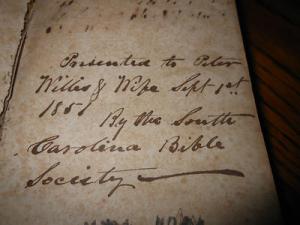 Presented to Peter
Willis & Wife Sept 1st
1851
By the South
Carolina Bible
Society